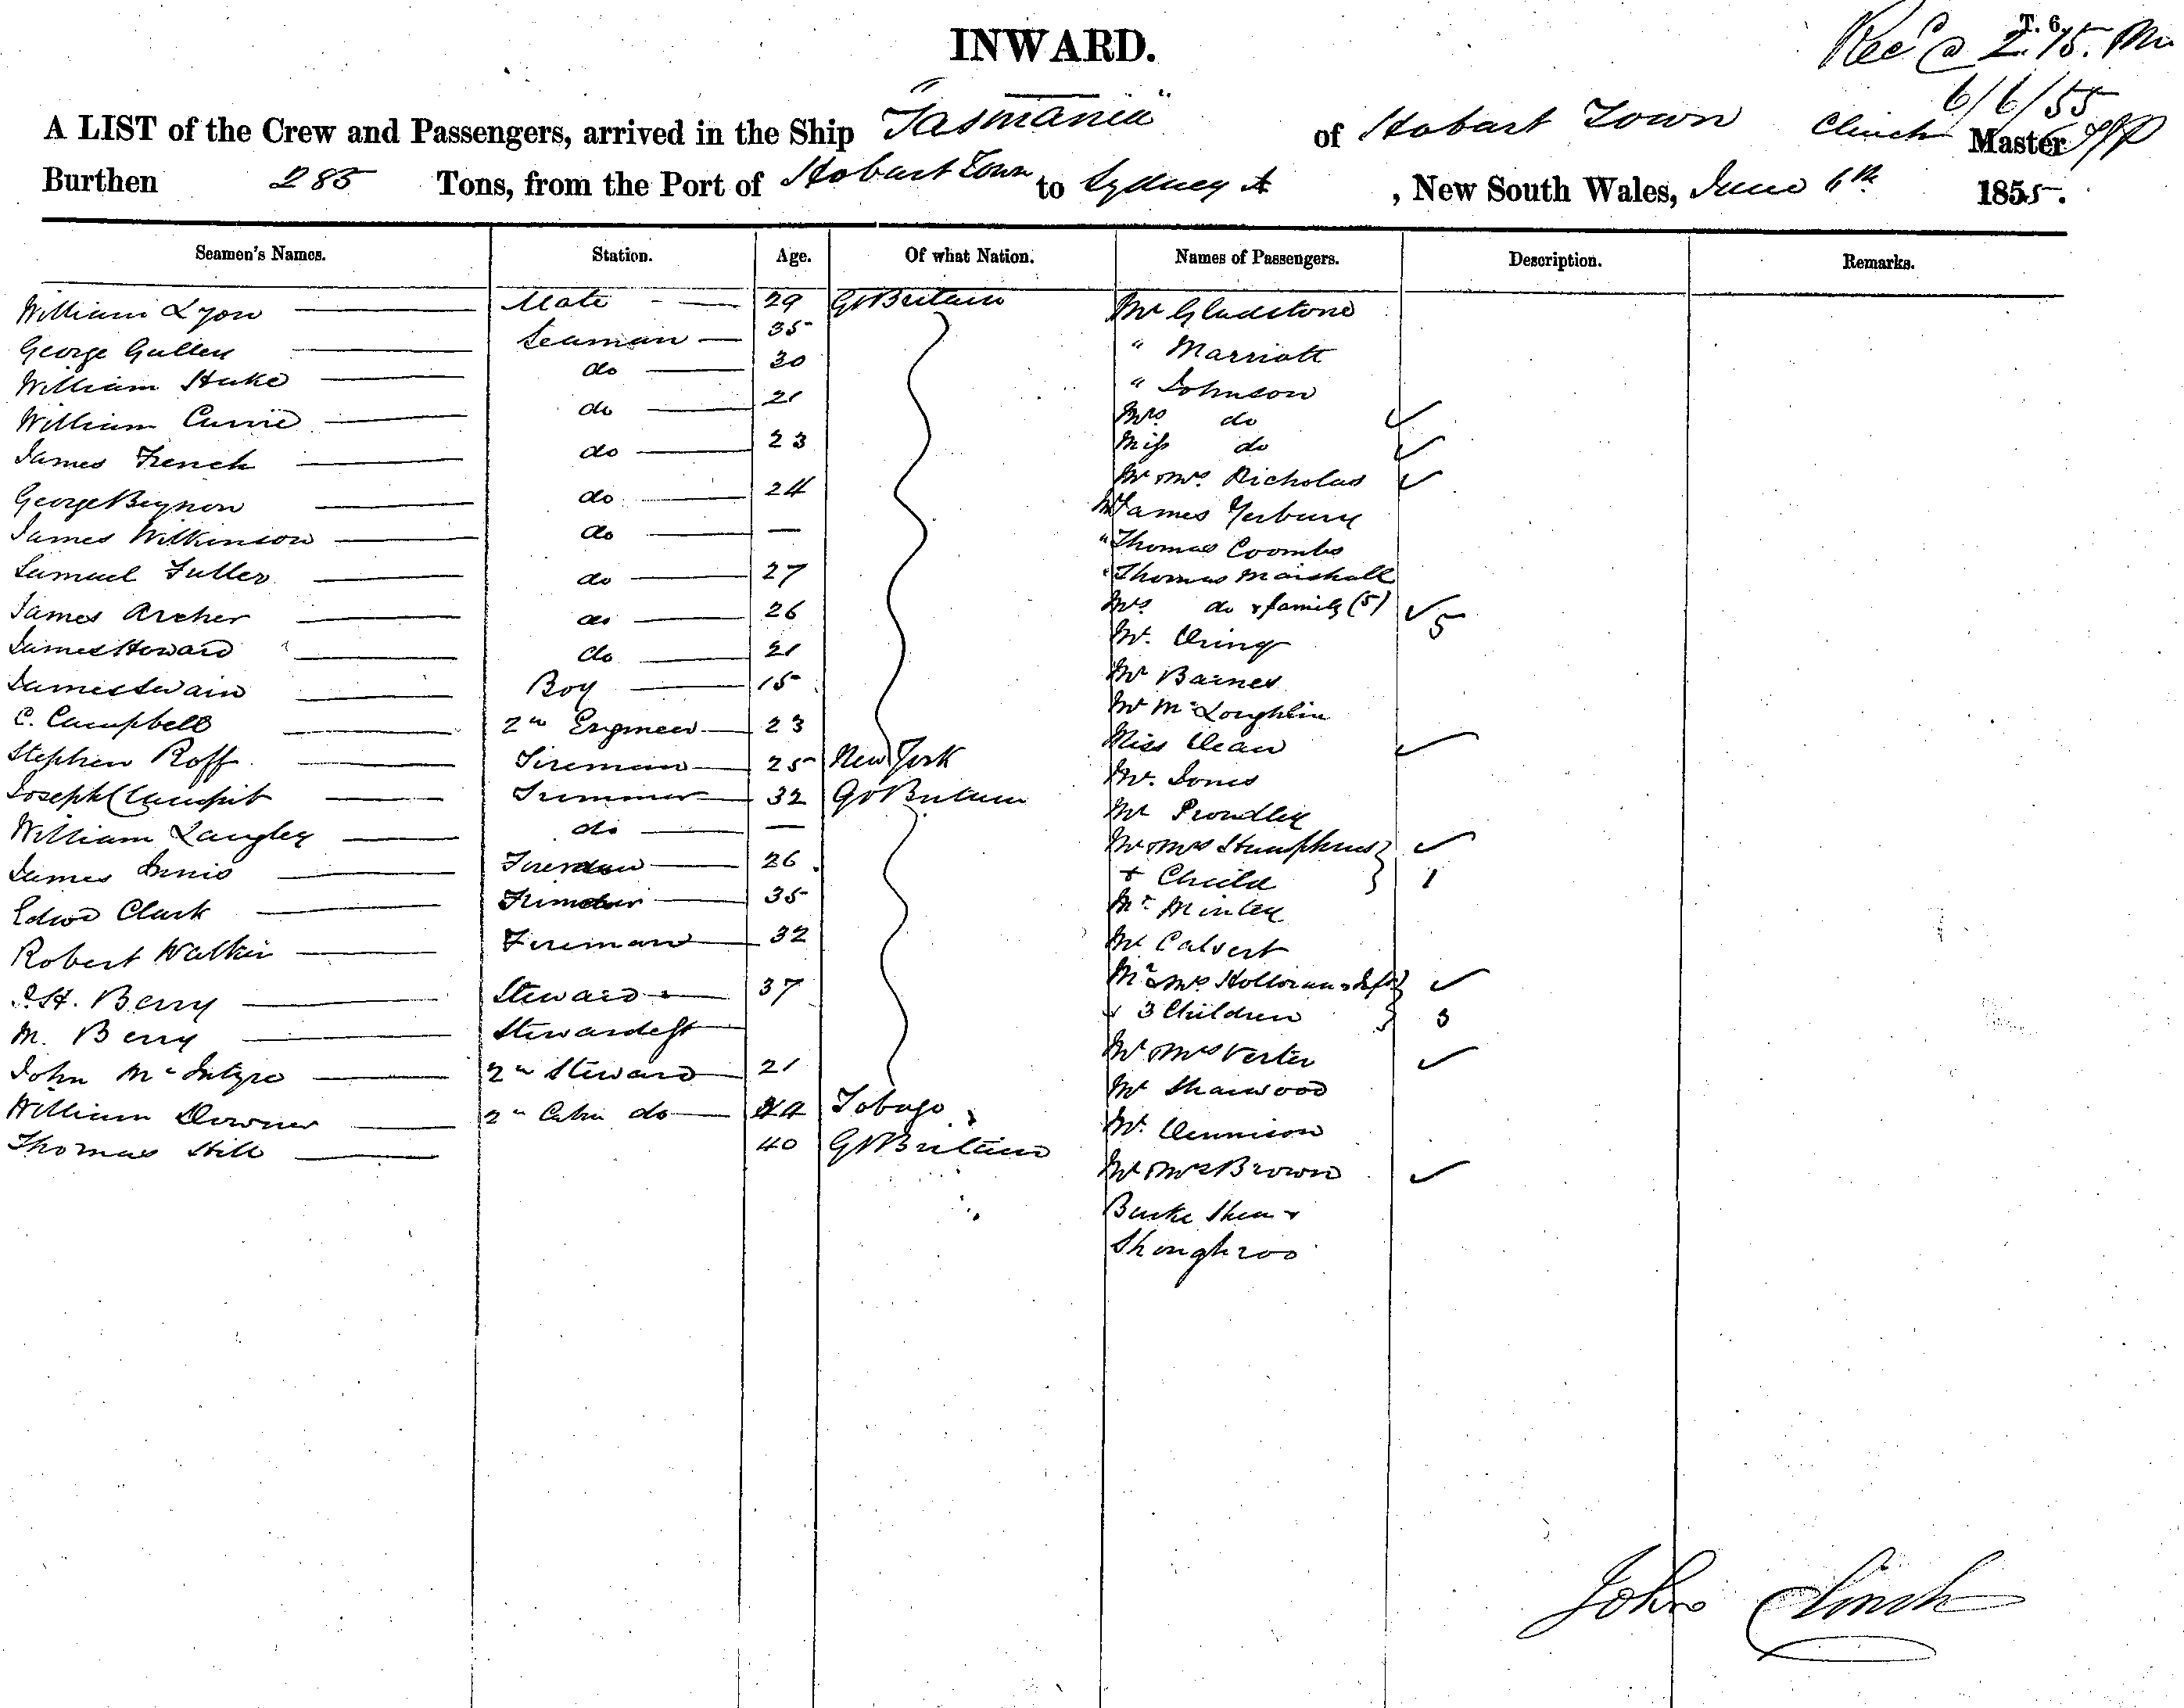 INWARD.
T. 6.
Recd @ 2.15.
6/6/55
A LIST of the Crew and Passengers, arrived in the Ship "Tasmania" of Hobart Town Clinch Master
Burthen 285 Tons, from the Port of Hobart Town to Sydney , New South Wales, June 6th 1855.
Seamen's Names. Station. Age. Of what Nation. Names of Passengers. Description. Remarks.
William Lyon Mate 29 Gt Britain Mr Gladstone
George Gullen Seaman 35 " Marriott
William Hake do 30 " Johnson
William Currie do 21 Mrs do
James French do 23 Miss do
George Beynon do 24 Mr & Mrs Nicholas
James Wilkinson do — Mr James Yerbury
Samuel Fuller do 27 " Thomas Coombs
James Archer do 26 " Thomas Marshall
James Howard do 21 Mrs do & family (5) 5
James Swain Boy 15 Mr. Dring
C. Campbell 2nd Engineer 23 Mr Barnes
Stephen Roff Fireman 25 New York Mr McLoughlin
Joseph Trimmer 32 Gt Britain Miss Dean
William Langley do — Mr. Jones
James Innis Fireman 26 Mr Proudley
Edwd Clark Trimmer 35 Mr & Mrs Humphries
Robert Walker Fireman 32 + Child 1
H. Berry Steward 37 Mr Minley
M. Berry Stewardess Mr Calvert
John McIntyre 2nd Steward 21 Mr & Mrs Holloran & Inft
William Downer 2nd Cabin do 24 Tobago & 3 Children 3
Thomas Hill 40 Gt Britain Mr & Mrs Verter
Mr Sharwood
Mr. Dennison
Mr & Mrs Brown
Burke Shea &
John Clinch